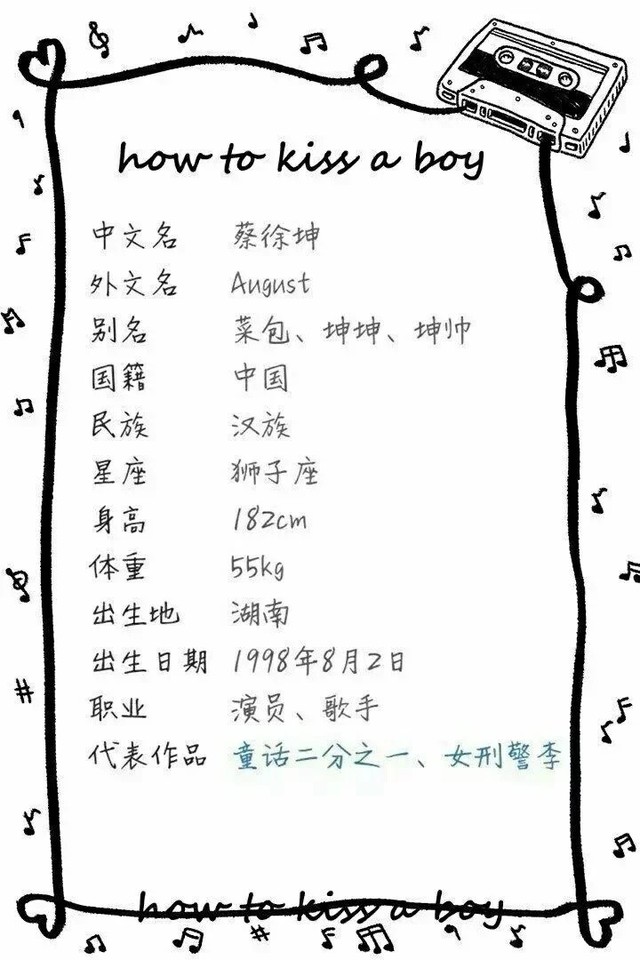 how to kiss a boy
中文名 蔡徐坤
外文名 August
别名 菜包、坤坤、坤帅
国籍 中国
民族 汉族
星座 狮子座
身高 182cm
体重 55kg
出生地 湖南
出生日期 1998年8月2日
职业 演员、歌手
代表作品 童话二分之一、女刑警李
how to kiss a boy